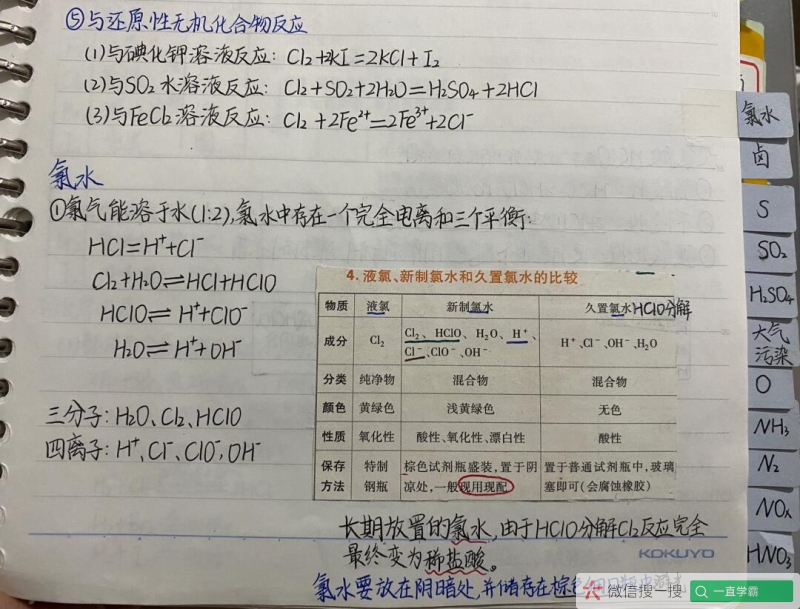 ⑤与还原性无机化合物反应
(1)与碘化钾溶液反应: Cl₂+2KI=2KCl+I₂
(2)与SO₂水溶液反应: Cl₂+SO₂+2H₂O=H₂SO₄+2HCl
(3)与FeCl₂溶液反应: Cl₂+2Fe²⁺=2Fe³⁺+2Cl⁻
氯水
①氯气能溶于水(1:2),氯水中存在一个完全电离和三个平衡:
HCl=H⁺+Cl⁻
Cl₂+H₂O⇌HCl+HClO
HClO⇌H⁺+ClO⁻
H₂O⇌H⁺+OH⁻
三分子:H₂O、Cl₂、HClO
四离子:H⁺、Cl⁻、ClO⁻、OH⁻
4. 液氯、新制氯水和久置氯水的比较
物质 液氯 新制氯水 久置氯水HClO分解
成分 Cl₂ Cl₂、HClO、H₂O、H⁺、
Cl⁻、ClO⁻、OH⁻ H⁺、Cl⁻、OH⁻、H₂O
分类 纯净物 混合物 混合物
颜色 黄绿色 浅黄绿色 无色
性质 氧化性 酸性、氧化性、漂白性 酸性
保存 特制 棕色试剂瓶盛装,置于阴 置于普通试剂瓶中,玻璃
方法 钢瓶 凉处,一般现用现配 塞即可(会腐蚀橡胶)
长期放置的氯水,由于HClO分解Cl₂反应完全
最终变为稀盐酸。
KOKUYO
氯水要放在阴暗处,并储存在棕
氯水
卤
S
SO₂
H₂SO₄
大气
污染
O
NH₃
N₂
NOx
HNO₃
微信搜一搜
一直学霸